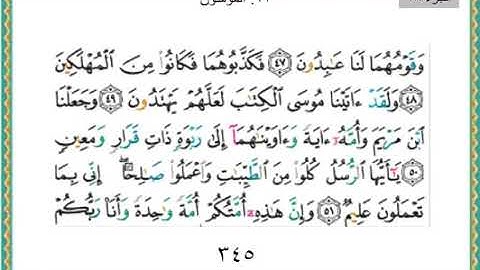 ٢٣. المؤمنون
وَقَوْمُهُمَا لَنَا عَٰبِدُونَ ٤٧ فَكَذَّبُوهُمَا فَكَانُوا۟ مِنَ ٱلْمُهْلَكِينَ
٤٨ وَلَقَدْ ءَاتَيْنَا مُوسَى ٱلْكِتَٰبَ لَعَلَّهُمْ يَهْتَدُونَ ٤٩ وَجَعَلْنَا
ٱبْنَ مَرْيَمَ وَأُمَّهُۥٓ ءَايَةً وَءَاوَيْنَٰهُمَآ إِلَىٰ رَبْوَةٍ ذَاتِ قَرَارٍ وَمَعِينٍ
٥٠ يَٰٓأَيُّهَا ٱلرُّسُلُ كُلُوا۟ مِنَ ٱلطَّيِّبَٰتِ وَٱعْمَلُوا۟ صَٰلِحًا ۖ إِنِّى بِمَا
تَعْمَلُونَ عَلِيمٌ ٥١ وَإِنَّ هَٰذِهِۦٓ أُمَّتُكُمْ أُمَّةً وَٰحِدَةً وَأَنَا۠ رَبُّكُمْ
٣٤٥